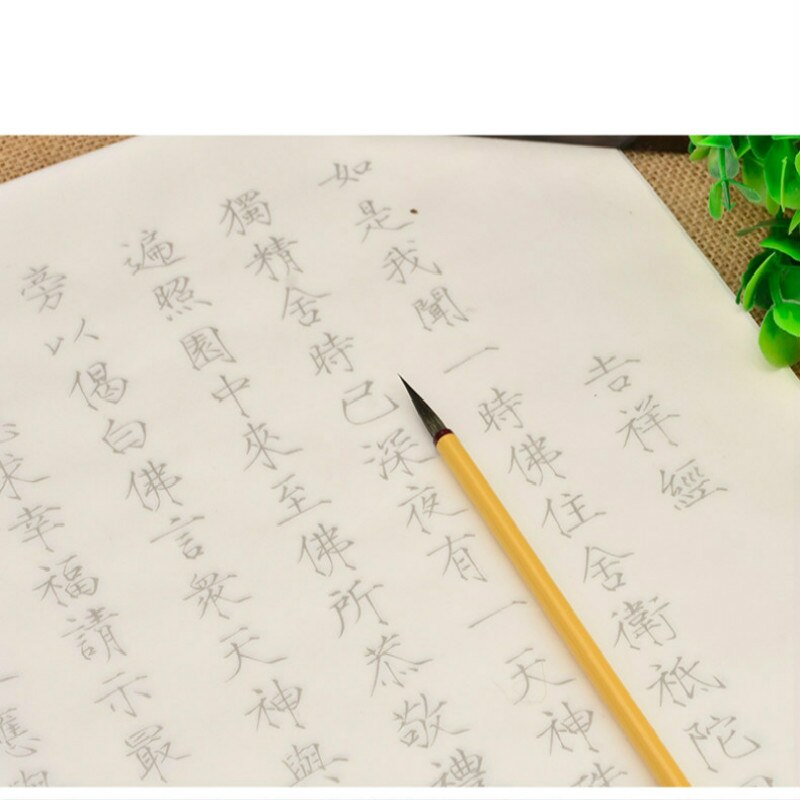 吉祥經
如是我聞一時佛住舍衛祗陀
獨精舍時已深夜有一天神殊
遍照園中來至佛所恭敬禮
旁以偈白佛言衆天神與
心求幸福請示最
應